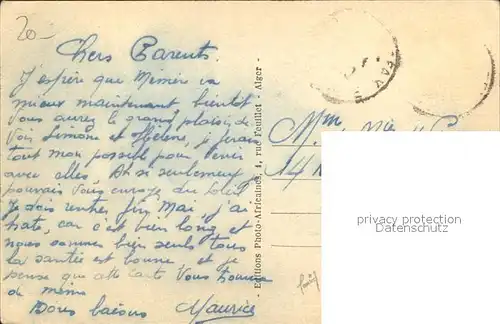 20-
Chers Parents.
J'espère que Mémère va
mieux maintenant bientot
Vous aurez le grand plaisir de
Voir Simone et Hélène, je ferais
tout mon possible pour venir
avec elles, Ah si seulement je
pouvais Vous envoyer du Soleil
Je dois rentrer fin Mai, j'ai
hate, car c'est bien long et
nous sommes bien seuls tous
la santée est bonne et je
pense que cette carte Vous trouvera
de même
Bons baisers Maurice
- Editions Photo-Africaines, 4, rue Feuillet - Alger -
Mme
14
privacy protection
Datenschutz